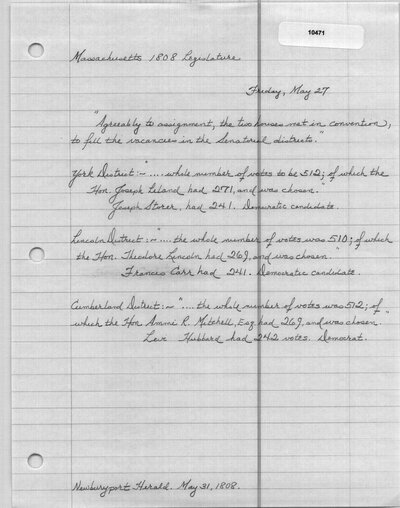 10471
Massachusetts 1808 Legislature
Friday, May 27
"Agreeably to assignment, the two houses met in convention,
to fill the vacancies in the Senatorial districts."
York District:~ ".... whole number of votes to be 512; of which the
Hon. Joseph Leland had 271, and was chosen."
Joseph Storer, had 241. Democratic candidate.
Lincoln District:~ ".... the whole number of votes was 510; of which
the Hon. Theodore Lincoln had 269, and was chosen."
Francis Carr had 241. Democratic candidate.
Cumberland District:~ ".... the whole number of votes was 512; of
which the Hon. Ammi R. Mitchell, Esq. had 269, and was chosen."
Levi Hubbard had 242 votes. Democrat.
Newburyport Herald. May 31, 1808.